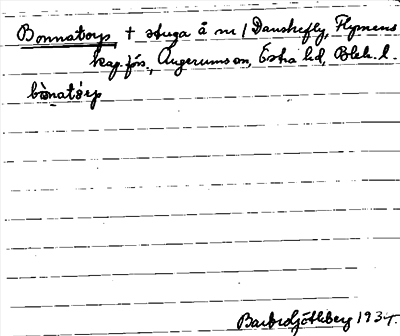 Bonnatorp † stuga å nr 1 Danskefly, Flymens
kap. förs., Augerums sn, Östra hd, Blek. l.
bònatórp
Barbro Götlberg 1934.